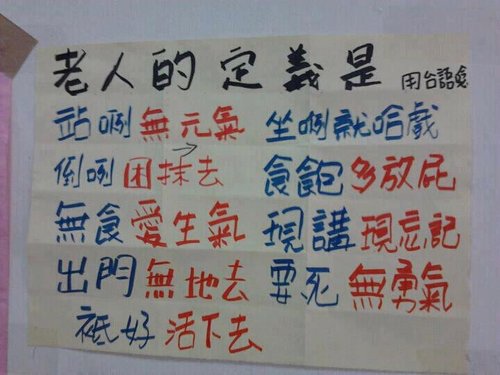 老人的定義是 用台語唸
站咧無元氣 坐咧就哈戲
倒咧困抹去 食飽多放屁
無食愛生氣 現講現忘記
出門無地去 要死無勇氣
祗好活下去